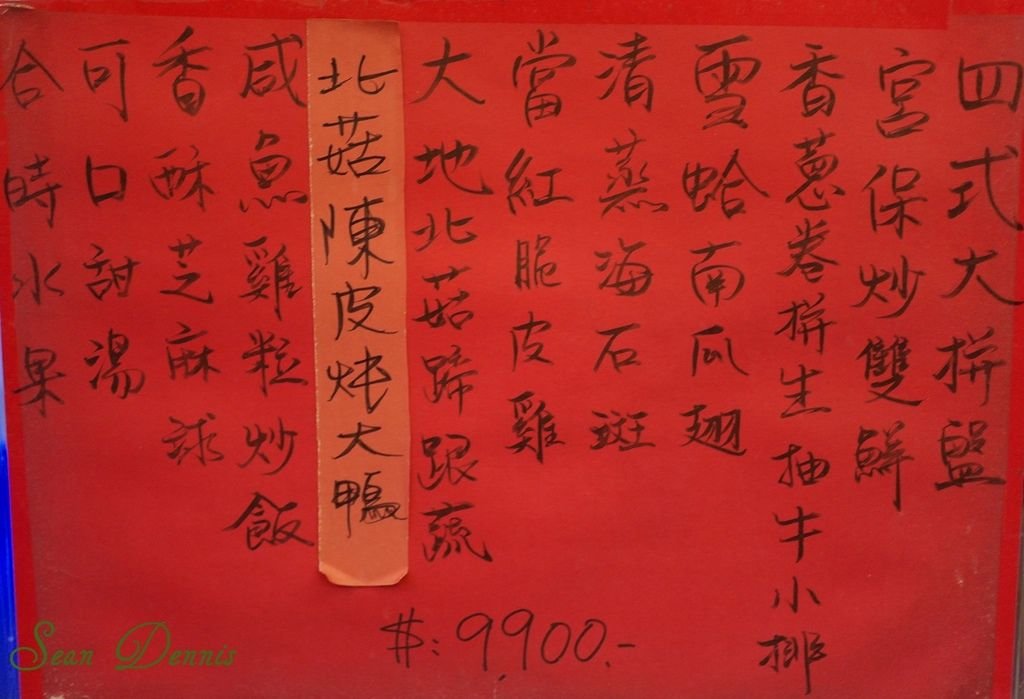 四式大拼盤
宮保炒雙鮮
香蔥卷拼生抽牛小排
雪蛤南瓜翅
清蒸海石斑
當紅脆皮雞
大地北菇蹄跟蔬
北菇陳皮炖大鴨
咸魚雞粒炒飯
香酥芝麻球
可口甜湯
合時水果
$:9,900.-
Sean Dennis